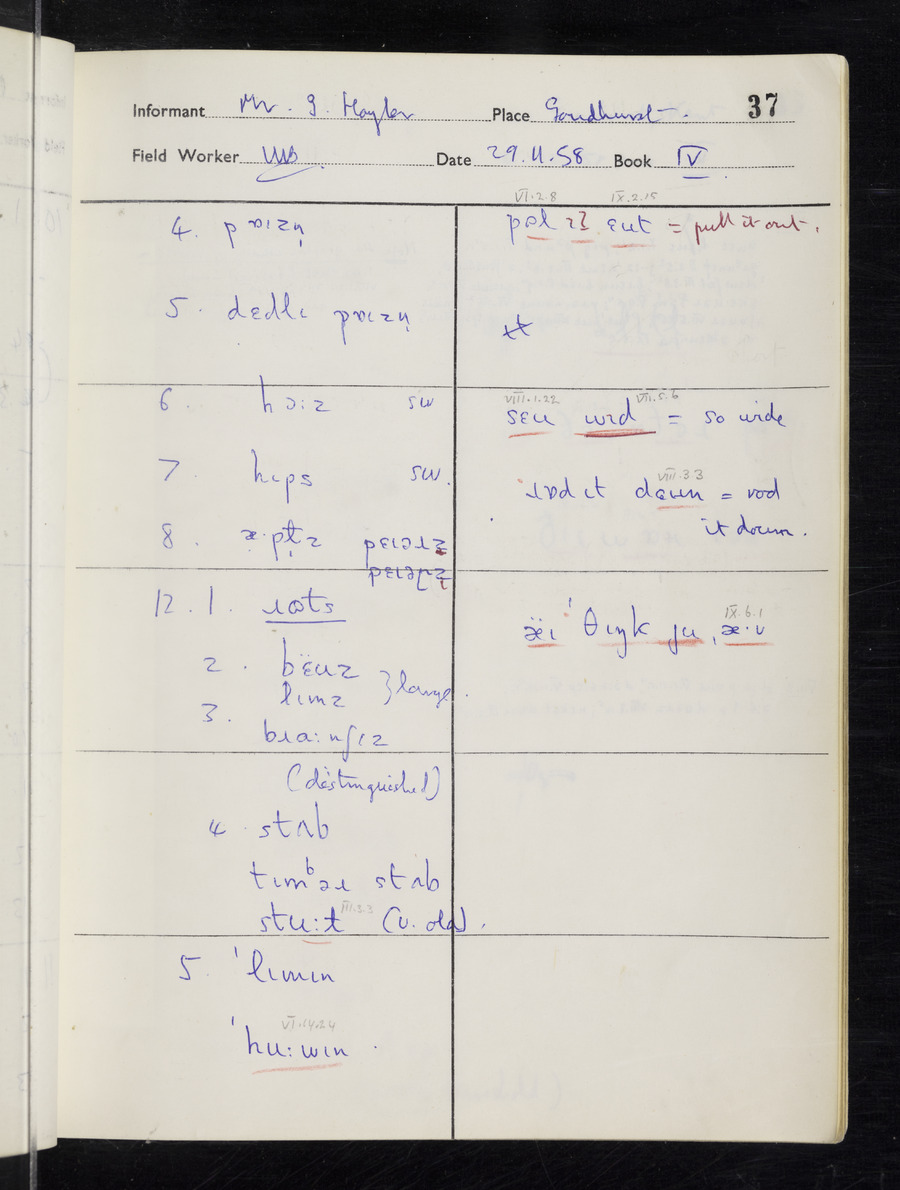 Informant Mr. G. Hayler Place Goudhurst. 37
Field Worker WB Date 29.11.58 Book IV
4. pɒɪzn̩
5. dɛdlɪ pɒɪzn̩
6. hɔːz sw
7. hɪps sw.
8.
12. 1. ɹɒts
2. bɛ̈ʊz
lɪmz } large.
3. bɹaːnʃɪz
(distinguished)
4 stʌb
tɪmᵇəɹ stʌb
III.3.3
stuːɫ (v. old).
5. ˈlɪmɪn
VI.14.24
ˈhuːwɪn.
VI.2.8 IX.2.15
ɛut = pull it out.
VIII.1.22 VII.5.6
sɛu wɪd = so wide
VIII.3.3
ɹɒd ɪt = rod
it down.
IX.6.1
ˈθɪŋk ju